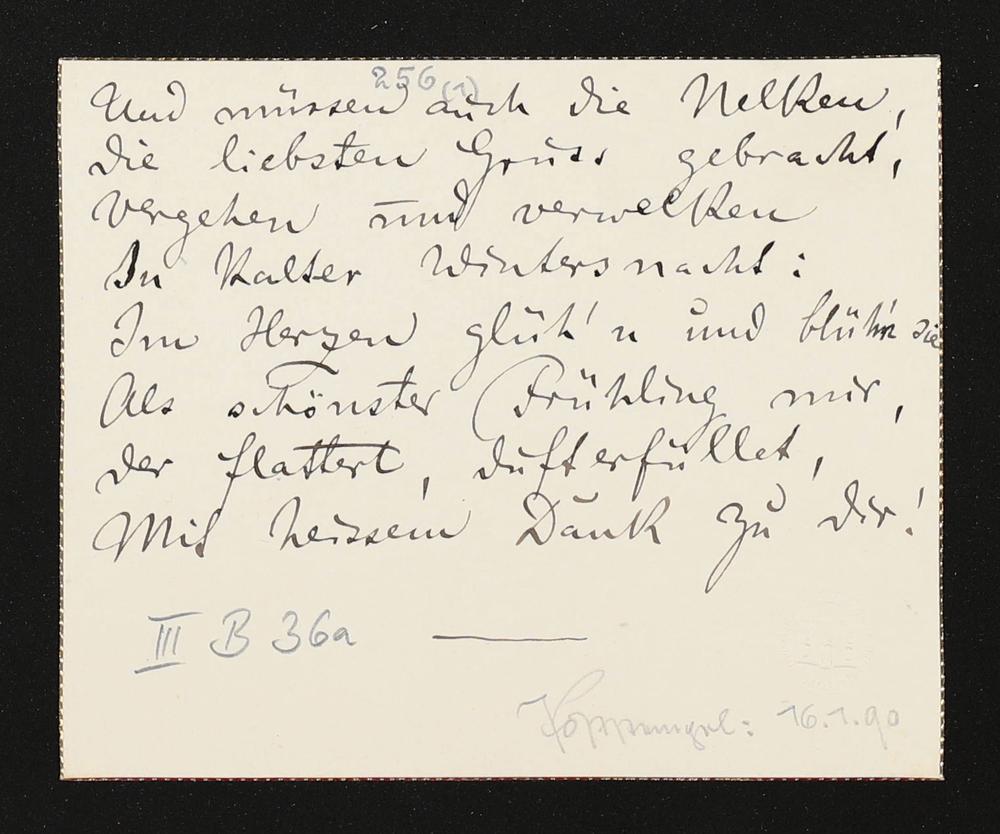 256(1)
Und müssen auch die Nelken,
die liebsten Gruss gebracht,
Vergehen und verwelken
In kalter Wintersnacht:
Im Herzen glüh'n und blüh'n sie
Als schönster Frühling mir,
der flattert, dufterfüllet,
Mit heissem Dank zu dir!
III B 36a
16.1.90